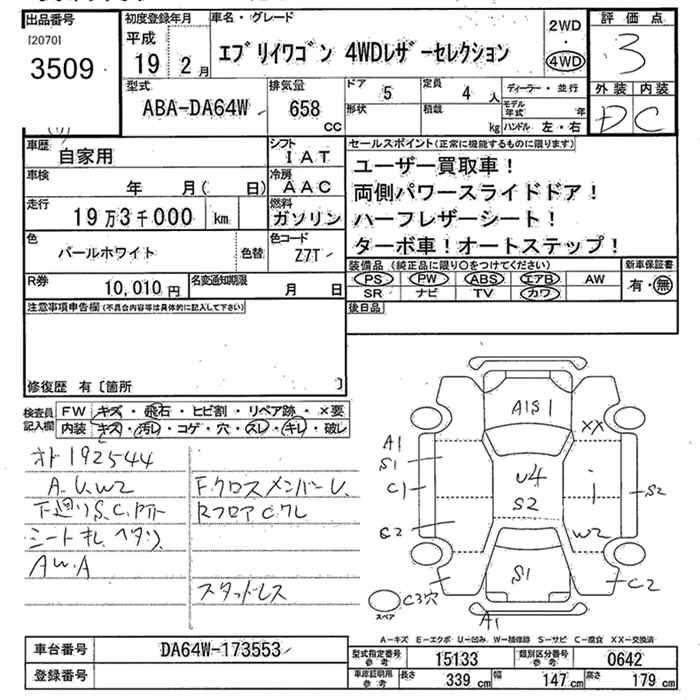 出品番号
[2070]
3509
初度登録年月
平成
19 2月
車名・グレード
エブリイワゴン 4WDレザーセレクション
2WD
・
4WD
評価点
3
外装 内装
D C
型式
ABA-DA64W
排気量
658
CC
ドア
5
定員
4 人
形状
積載
kg
ディーラー・並行
モデル年式 年
ハンドル 左・右
車歴
自家用
シフト
IAT
車検
年 月( 日)
冷房
AAC
走行
19万3千000 km
燃料
ガソリン
色
パールホワイト
色替
色コード
Z7T
R券
10,010円
名変通知期限
月 日
セールスポイント(正常に機能するものに限ります)
ユーザー買取車!
両側パワースライドドア!
ハーフレザーシート!
ターボ車!オートステップ!
装備品(純正品に限り○をつけてください)
PS PW ABS エアB AW
SR ナビ TV カワ
新車保証書
有・無
後日品
注意事項申告欄(不具合内容等は具体的に記入して下さい)
修復歴 有〔箇所 〕
検査員記入欄
FW キズ・飛石・ヒビ割・リペア跡・×要
内装 キズ・汚レ・コゲ・穴・スレ・キレ・破レ
オド192544
A.U.W2
下廻りS.C.
シートキレ ヘタリ
AW.A
F.クロスメンバーU.
RフロアCクレ
スタッドレス
A1S1
XX
A1
S1
C1
U4
S2
S2
W2
S1
C3穴
C2
A1
スペア
A-キズ E-エクボ U-凹み W-補修跡 S-サビ C-腐食 XX-交換済
車台番号
DA64W-173553
登録番号
型式指定番号
参考
15133
類別区分番号
参考
0642
車庫証明用
参考
長さ 339cm 幅 147cm 高さ 179cm